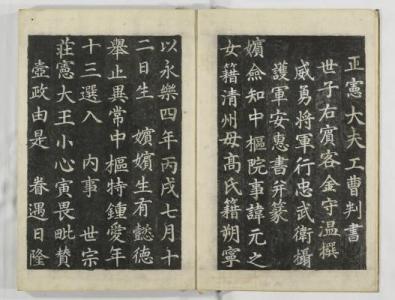 正憲大夫工曹判書
世子右賓客金守温撰
威勇將軍行忠武衛攝
護軍安惠書并篆
嬪僉知中樞院事諱元之
女籍清州母髙氏籍朔寧
以永樂四年丙戌七月十
二日生 嬪嬪生有懿德
舉止異常中樞特鍾愛年
十三選入 内事 世宗
莊憲大王小心寅畏毗賛
壼政由是 眷遇日隆